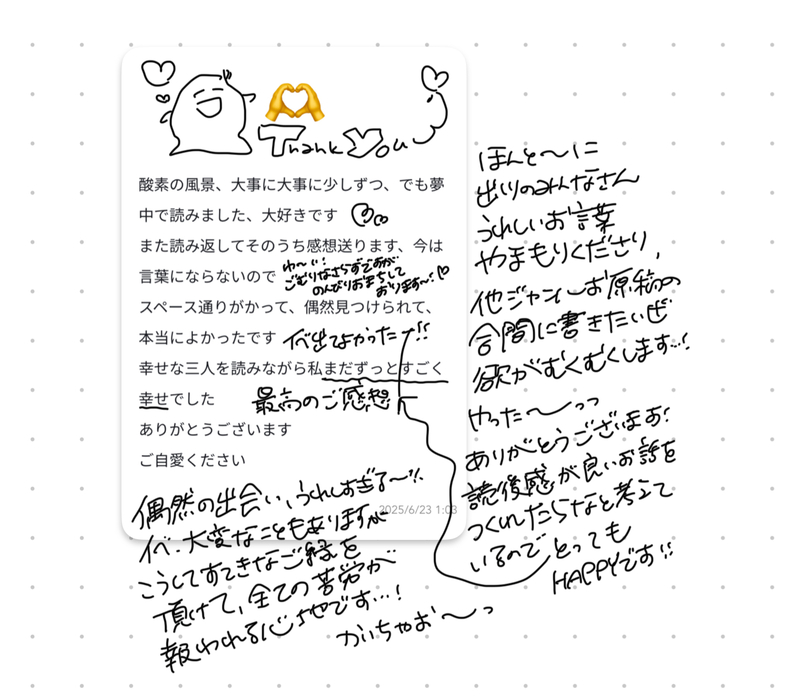 Thank You
酸素の風景、大事に大事に少しずつ、でも夢
中で読みました、大好きです
また読み返してそのうち感想送ります、今は
言葉にならないので
わ〜い!
ごむりなさらずですが
のんびりおまちして
おります〜!
スペース通りがかって、偶然見つけられて、
本当によかったです
イベ出てよかったー!!
幸せな三人を読みながら私まだずっとすごく
幸せでした
最高のご感想
ありがとうございます
ご自愛ください
2025/6/23 1:03
偶然の出会い、うれしすぎる〜!!
イベ、大変なこともありますが
こうしてすてきなご縁を
頂けて、全ての苦労が
報われる心地です…!
かいちゃお〜っ
ほんと〜に
出いりのみんなさん
うれしいお言葉
やまもりくださり、
他ジャンルお原稿の
合間に書きたいぜ
欲がむくむくします…!
やった〜っっ
ありがとうございます!
読後感が良いお話を
つくれたらなと考えて
いるので とっても
HAPPYです!!